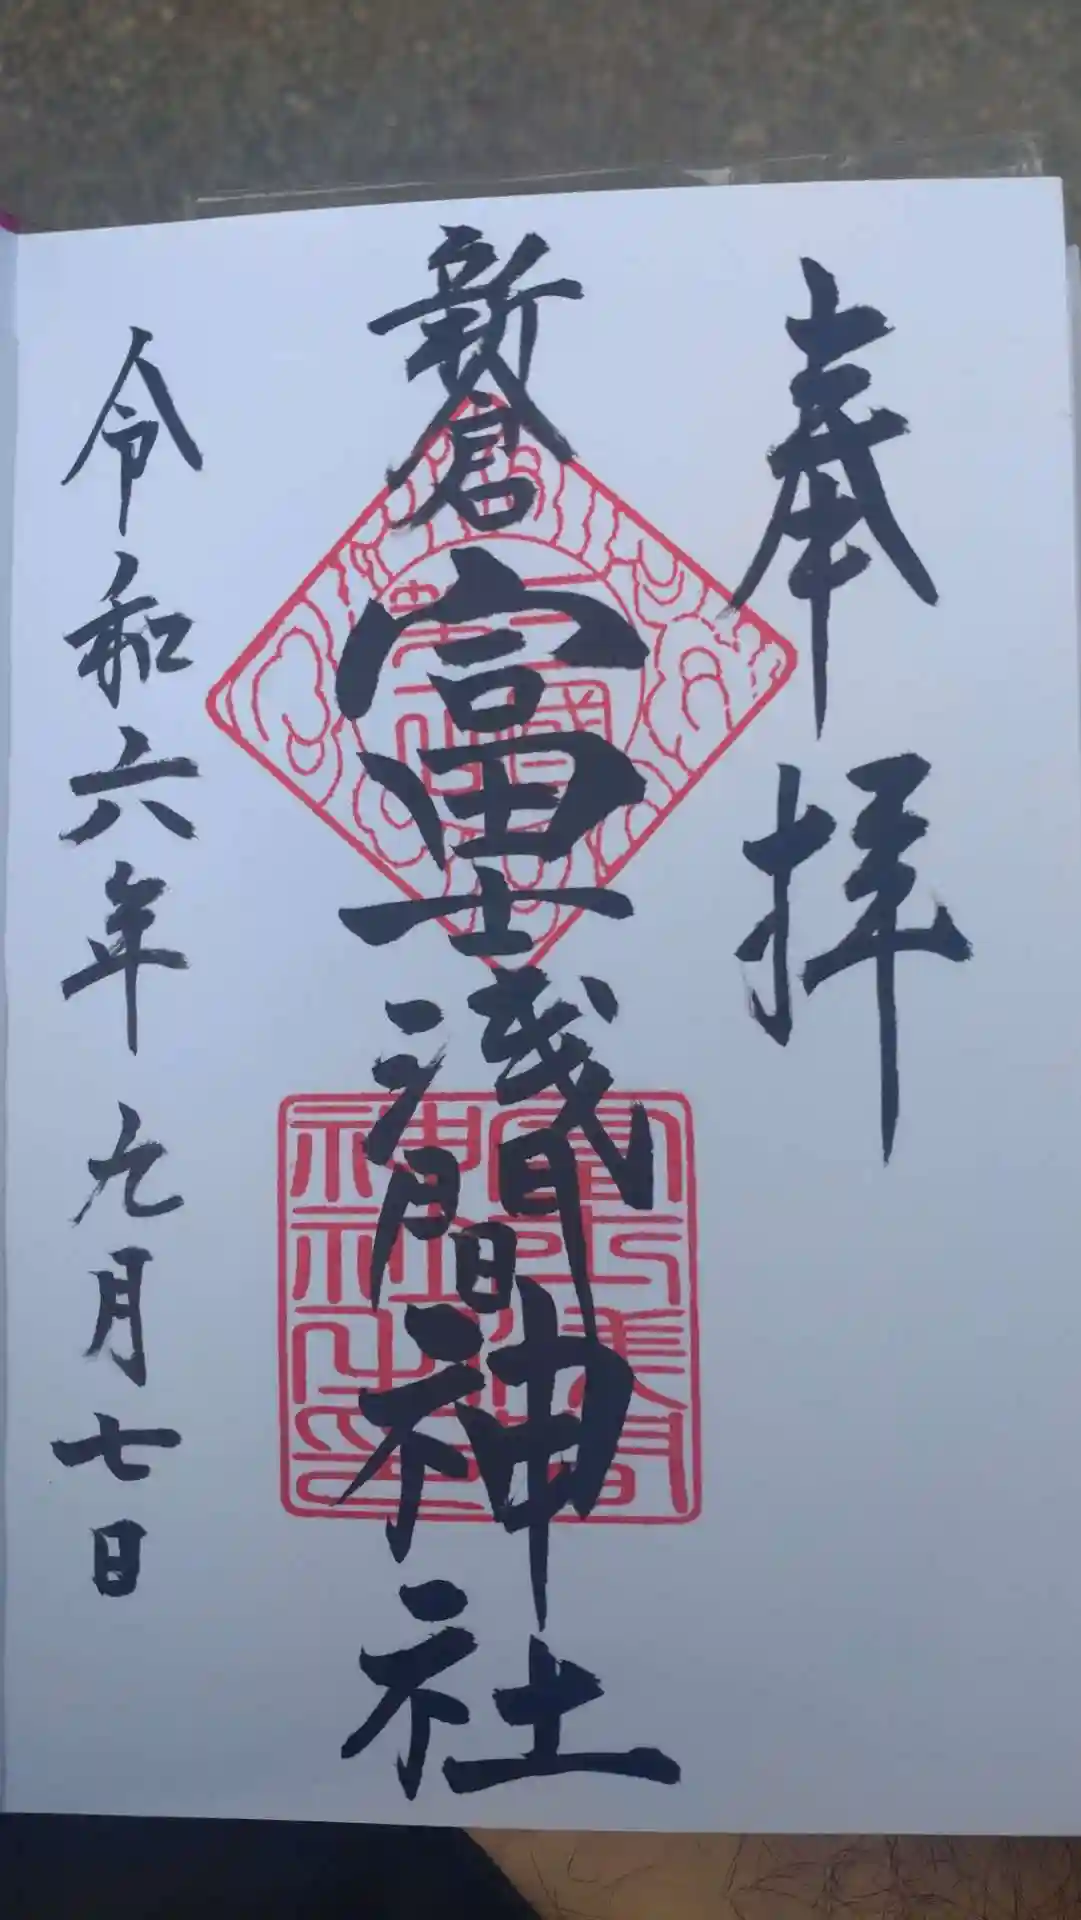 奉拝
新倉富士淺間神社
令和六年九月七日